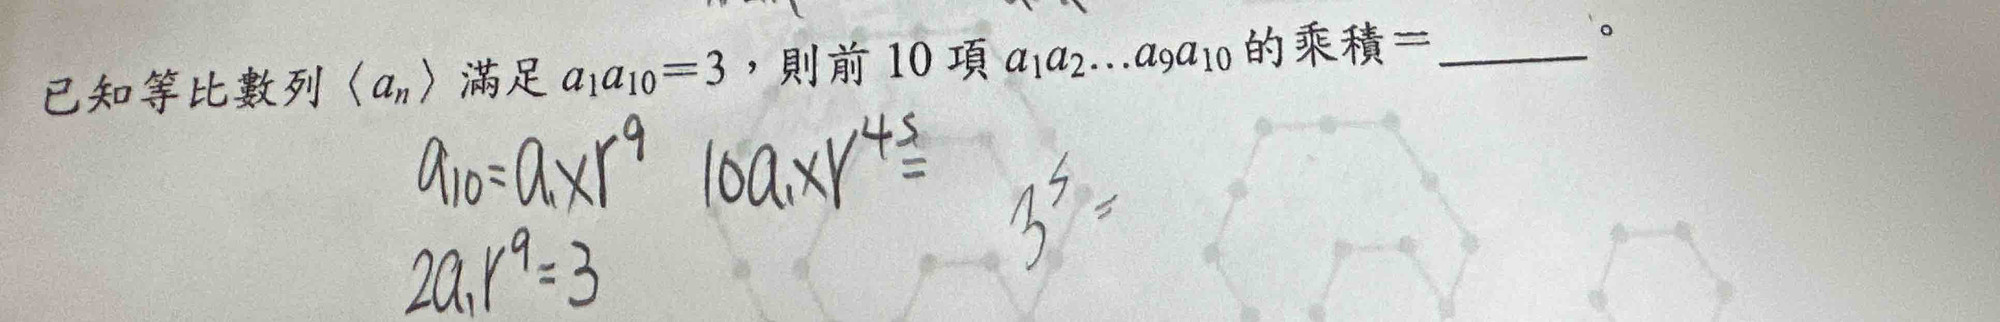 已知等比數列〈aₙ〉滿足 a₁a₁₀=3，則前 10 項 a₁a₂…a₉a₁₀ 的乘積=______。
a₁₀=a₁×r⁹ 10a₁×r⁴⁵= 3⁵=
2a₁r⁹=3